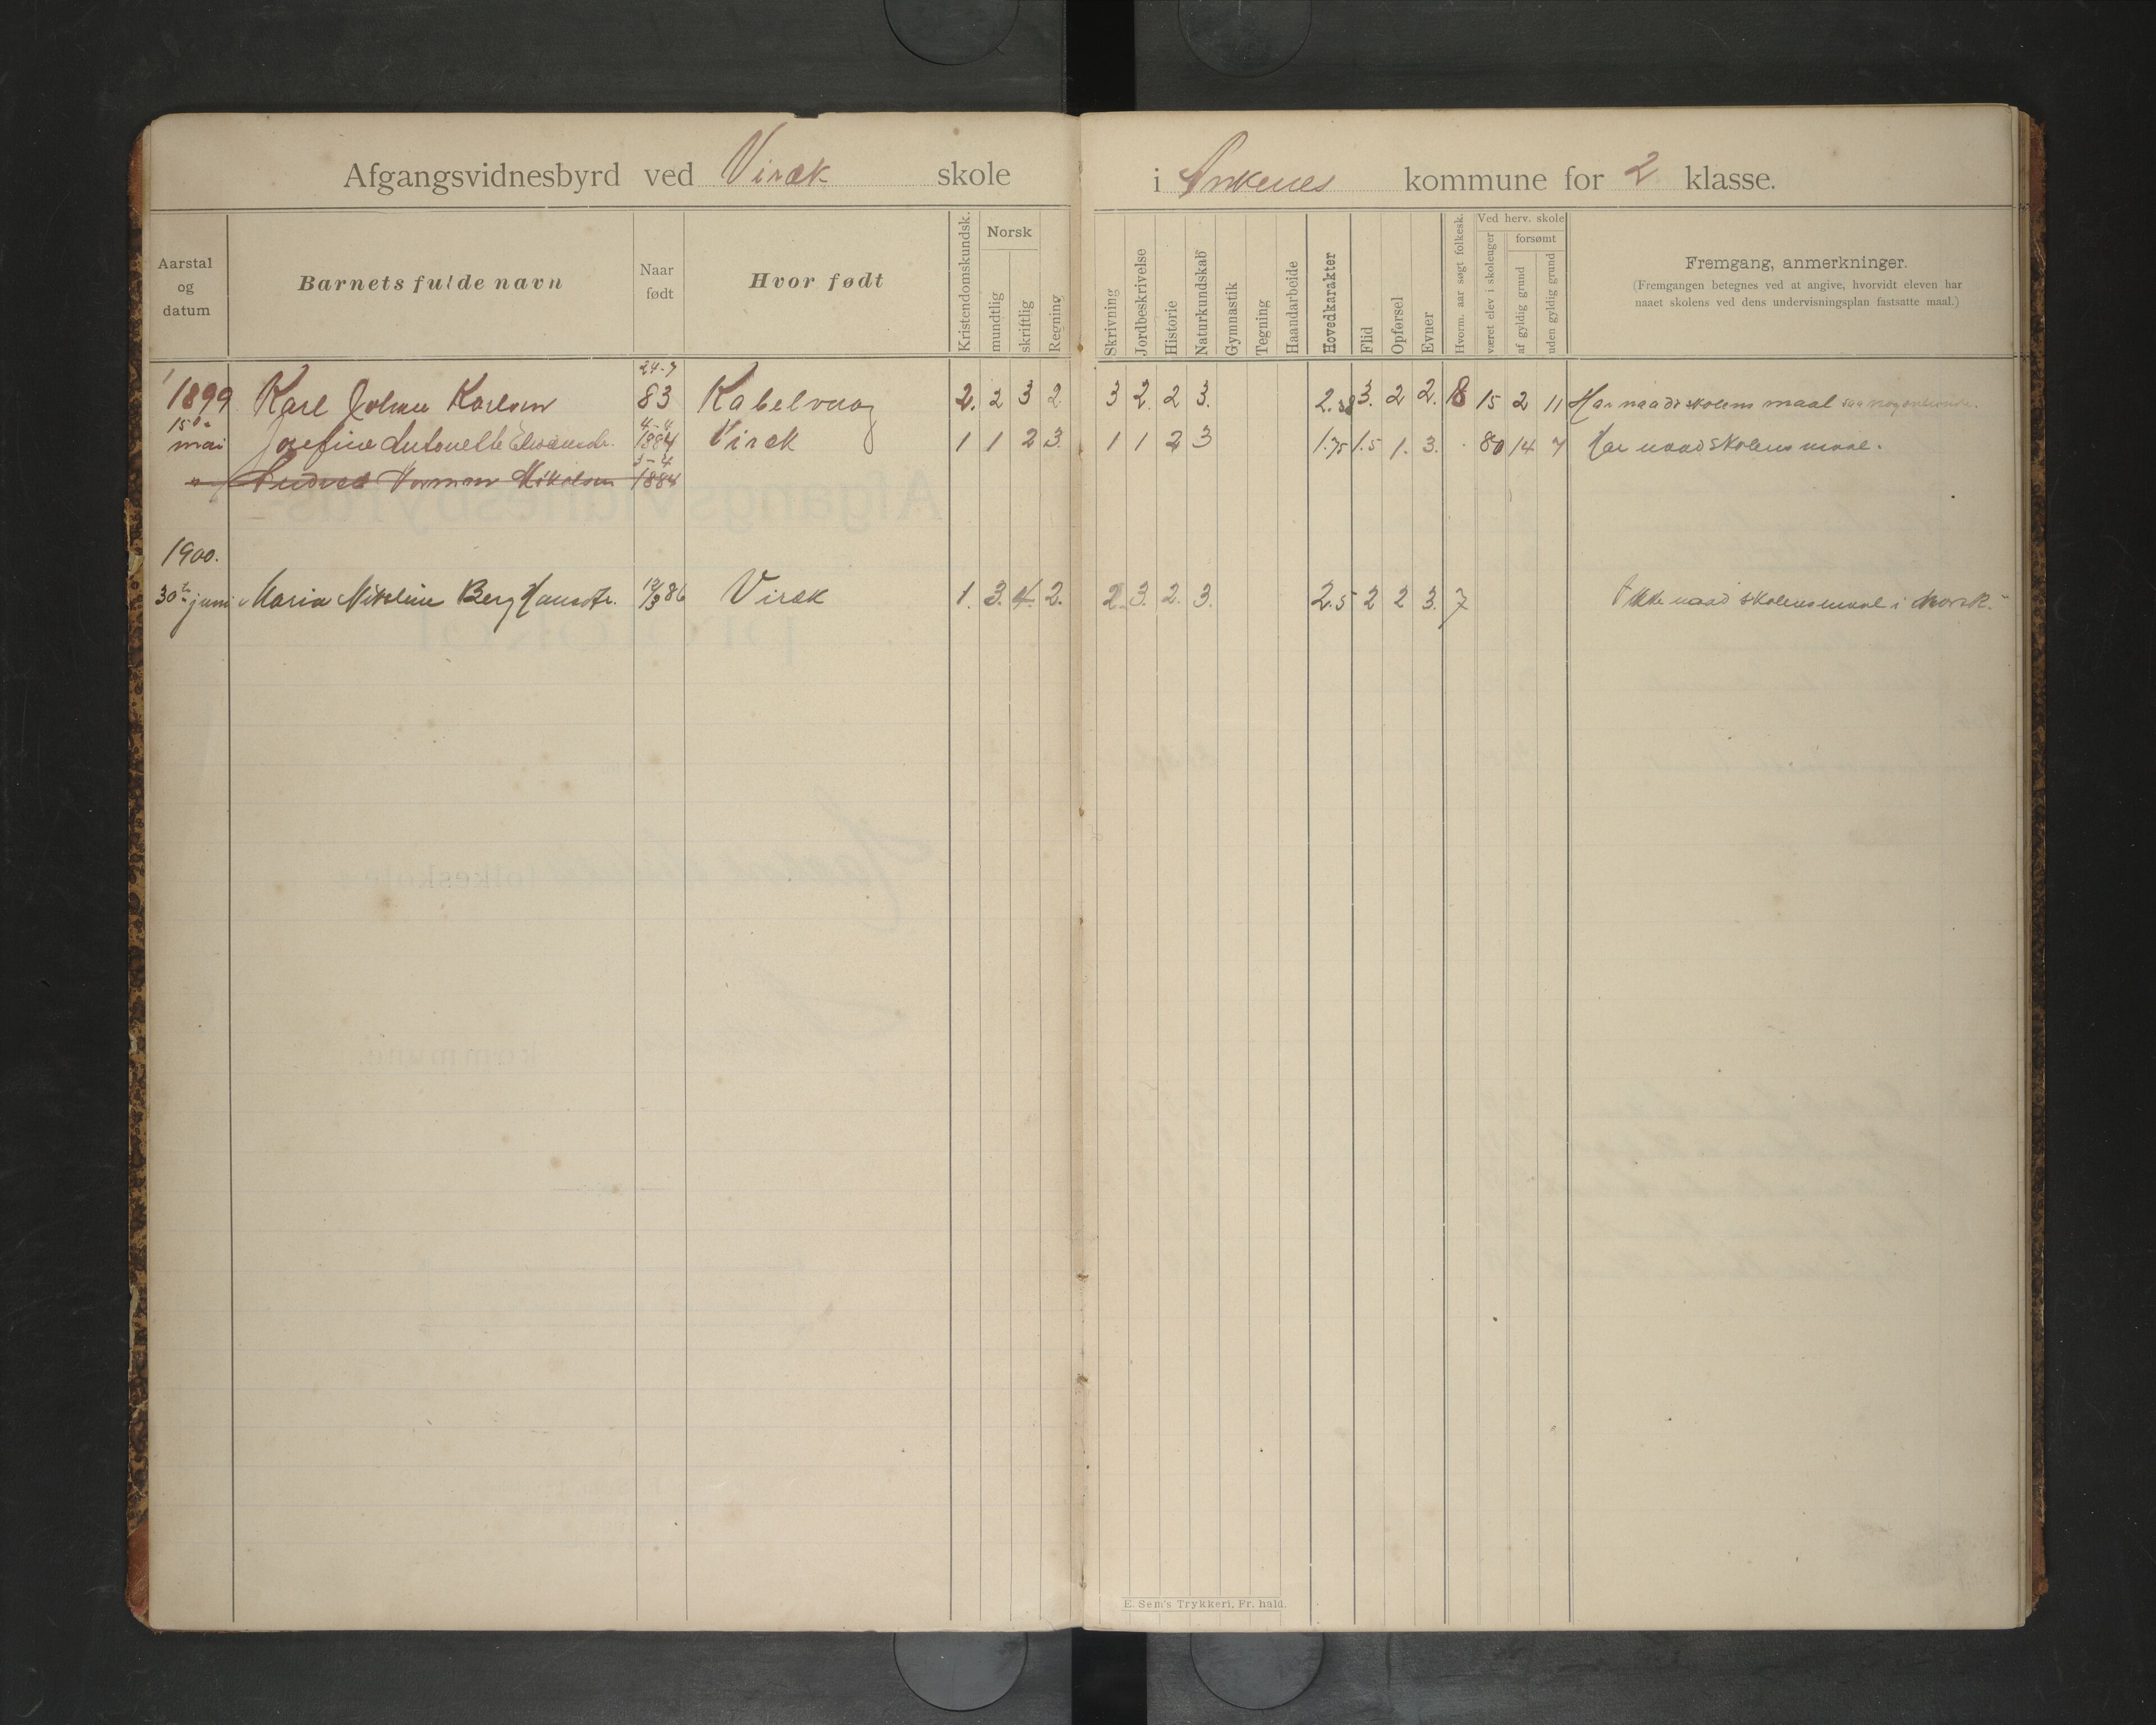 Afgangsvidnesbyrd ved Viræk skole i Ankenes kommune for 2 klasse.
Aarstal og datum
Barnets fulde navn
Naar født
Hvor født
Kristendomskundsk.
Norsk
mundtlig
skriftlig
Regning
Skrivning
Jordbeskrivelse
Historie
Naturkundskab
Gymnastik
Tegning
Haandarbeide
Hovedkarakter
Flid
Opførsel
Evner
Hvorm. aar søgt folkesk.
Ved herv. skole
været elev i skoleuger
forsømt
af gyldig grund
uden gyldig grund
Fremgang, anmerkninger.
(Fremgangen betegnes ved at angive, hvorvidt eleven har
naaet skolens ved dens undervisningsplan fastsatte maal.)
24-7
1899 Karl Johan Karlsen 83 Kabelvaag 2. 2 3 2. 3 2. 2 3. 2.38 3. 2 2. 8 15 2 11 Har naadd skolens maal saa nogenlunde.
15de 4-4
mai Josefine Antonette 1884 Viræk 1 1 2 3. 1 1 2 3 1.75 1.5 1. 3. 80 14 7 Har naad skolens maal.
3-4
" Andreas Norman Mikalsen 1884
1900.
30te juni Maria Nikoline Berg Hansdtr. 12/3 86 Viræk 1. 3. 4. 2. 2. 3. 2. 3. 2.5 2 2 3. 7 Ikke naad skolens maal i norsk.
E. Sem's Trykkeri, Fr.hald.